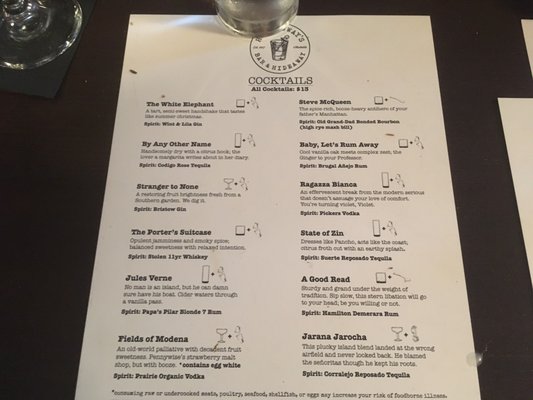 BAR & HIDEAWAY
COCKTAILS
All Cocktails: $13
The White Elephant
A tart, semi-sweet handshake that tastes
like summer christmas.
Spirit: Wint & Lila Gin
By Any Other Name
Handsomely dry with a citrus hook; the
lover a margarita writes about in her diary.
Spirit: Codigo Rose Tequila
Stranger to None
A restoring fruit brightness fresh from a
Southern garden. We dig it.
Spirit: Bristow Gin
The Porter's Suitcase
Opulent jamminess and smoky spice;
balanced sweetness with relaxed intention.
Spirit: Stolen 11yr Whiskey
Jules Verne
No man is an island, but he can damn
sure have his boat. Cider waters through
a vanilla pass.
Spirit: Papa's Pilar Blonde 7 Rum
Fields of Modena
An old-world palliative with decadent fruit
sweetness. Pennywise's strawberry malt
shop, but with booze. *contains egg white
Spirit: Prairie Organic Vodka
Steve McQueen
The spice-rich, booze-heavy antihero of your
father's Manhattan.
Spirit: Old Grand-Dad Bonded Bourbon
(high rye mash bill)
Baby, Let's Rum Away
Cool vanilla oak meets complex zest; the
Ginger to your Professor.
Spirit: Brugal Añejo Rum
Ragazza Bianca
An effervescent break from the modern serious
that doesn't assuage your love of comfort.
You're turning violet, Violet.
Spirit: Pickers Vodka
State of Zin
Dresses like Pancho, acts like the coast;
citrus froth out with an earthy splash.
Spirit: Suerte Reposado Tequila
A Good Read
Sturdy and grand under the weight of
tradition. Sip slow, this stern libation will go
to your head; be you willing or not.
Spirit: Hamilton Demerara Rum
Jarana Jarocha
This plucky island blend landed at the wrong
airfield and never looked back. He blamed
the señoritas though he kept his roots.
Spirit: Corralejo Reposado Tequila
*consuming raw or undercooked meats, poultry, seafood, shellfish, or eggs may increase your risk of foodborne illness.